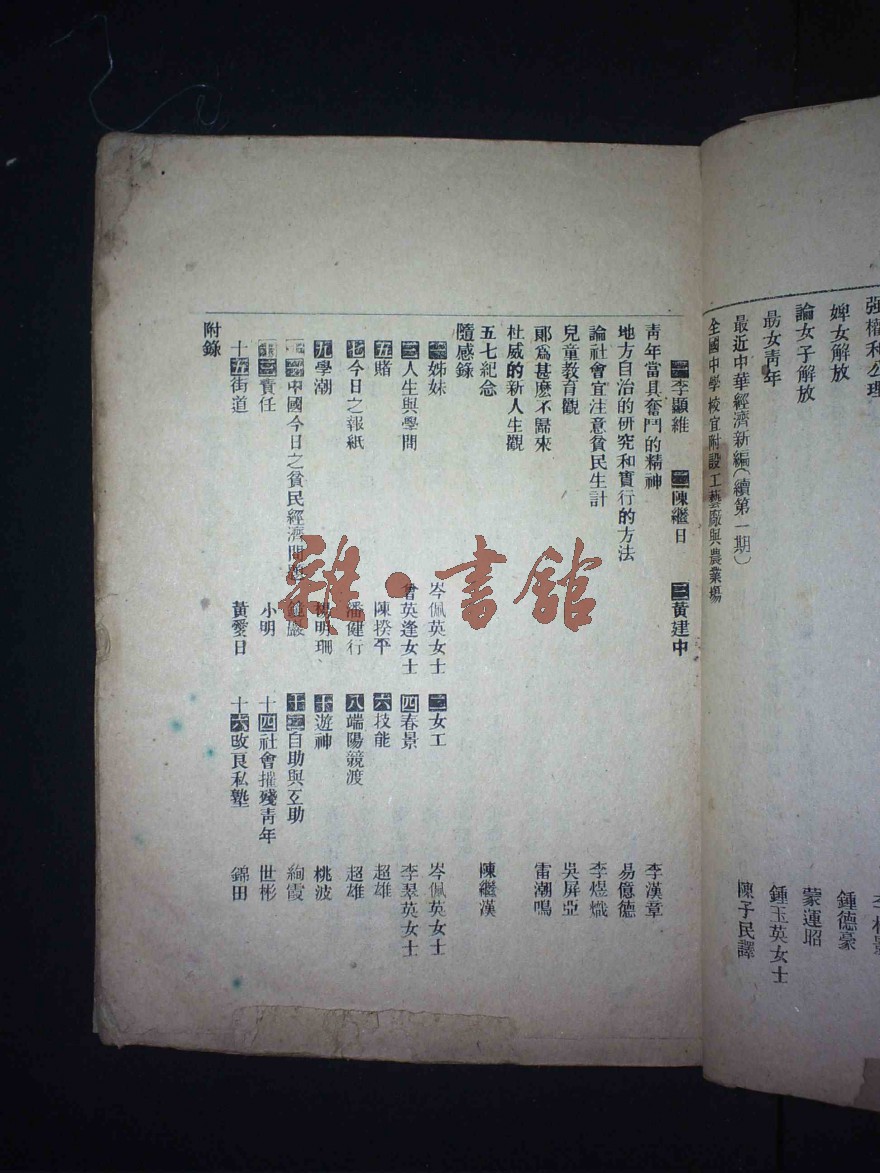 強權和公理
婢女解放 鍾德豪
論女子解放 蒙運昭
勗女靑年 鍾玉英女士
最近中華經濟新編(續第一期) 陳子民譯
全國中學校宜附設工藝廠與農業塲
李顯維 二陳繼日 三黃建中
靑年當具奮鬥的精神 李漢章
地方自治的研究和實行的方法 易億德
論社會宜注意貧民生計 李煜熾
兒童教育觀 吳屏亞
郞爲甚麽不歸來 雷潮鳴
杜威的新人生觀
五七紀念 陳繼漢
隨感錄
一姊妹 岑佩英女士 二女工 岑佩英女士
三人生與學問 曾英逢女士 四春景 李翠英女士
五賭 陳揆平 六技能 超雄
七今日之報紙 潘健行 八端陽競渡 超雄
九學潮 楊明珊 十遊神 桃波
中國今日之貧民經濟問題 十二自助與互助 絢霞
十三責任 小明 十四社會摧殘靑年 世彬
十五街道 黃愛日 十六攺良私塾 錦田
附錄
雜·書館